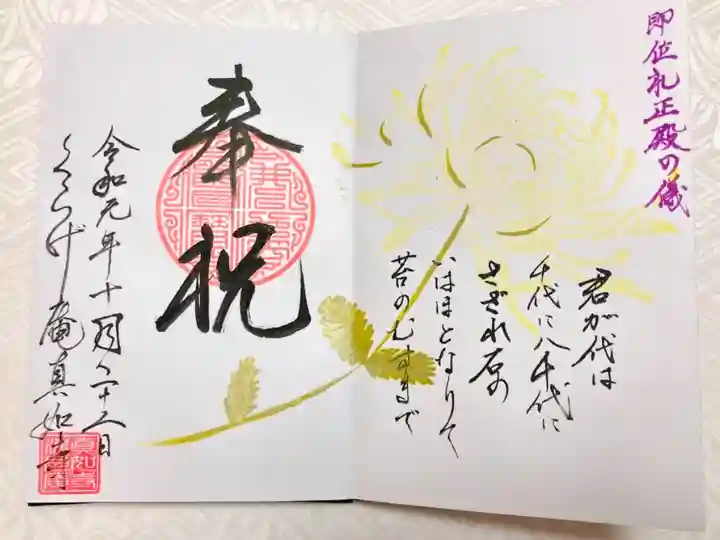 即位礼正殿の儀
君が代は
千代に八千代に
さざれ石の
いはほとなりて
苔のむすまで
奉祝
令和元年十月二十二日
くらげ庵真如寺
真如寺